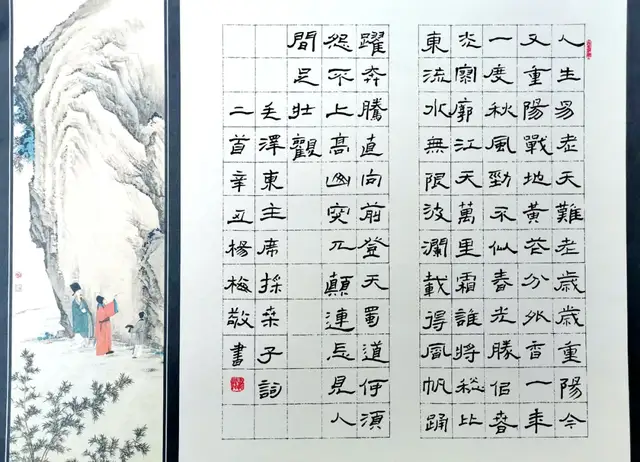 人生易老天難老歲歲重陽今
又重陽戰地黃花分外香一年
一度秋風勁不似春光勝似春
光寥廓江天萬里霜誰將秋比
東流水無限波瀾載得風帆踊
躍奔騰直向前登天蜀道何須
怨不上高山突兀顛連見人
間足壯觀
毛澤東主席採桑子詞
二首辛丑楊梅敬書